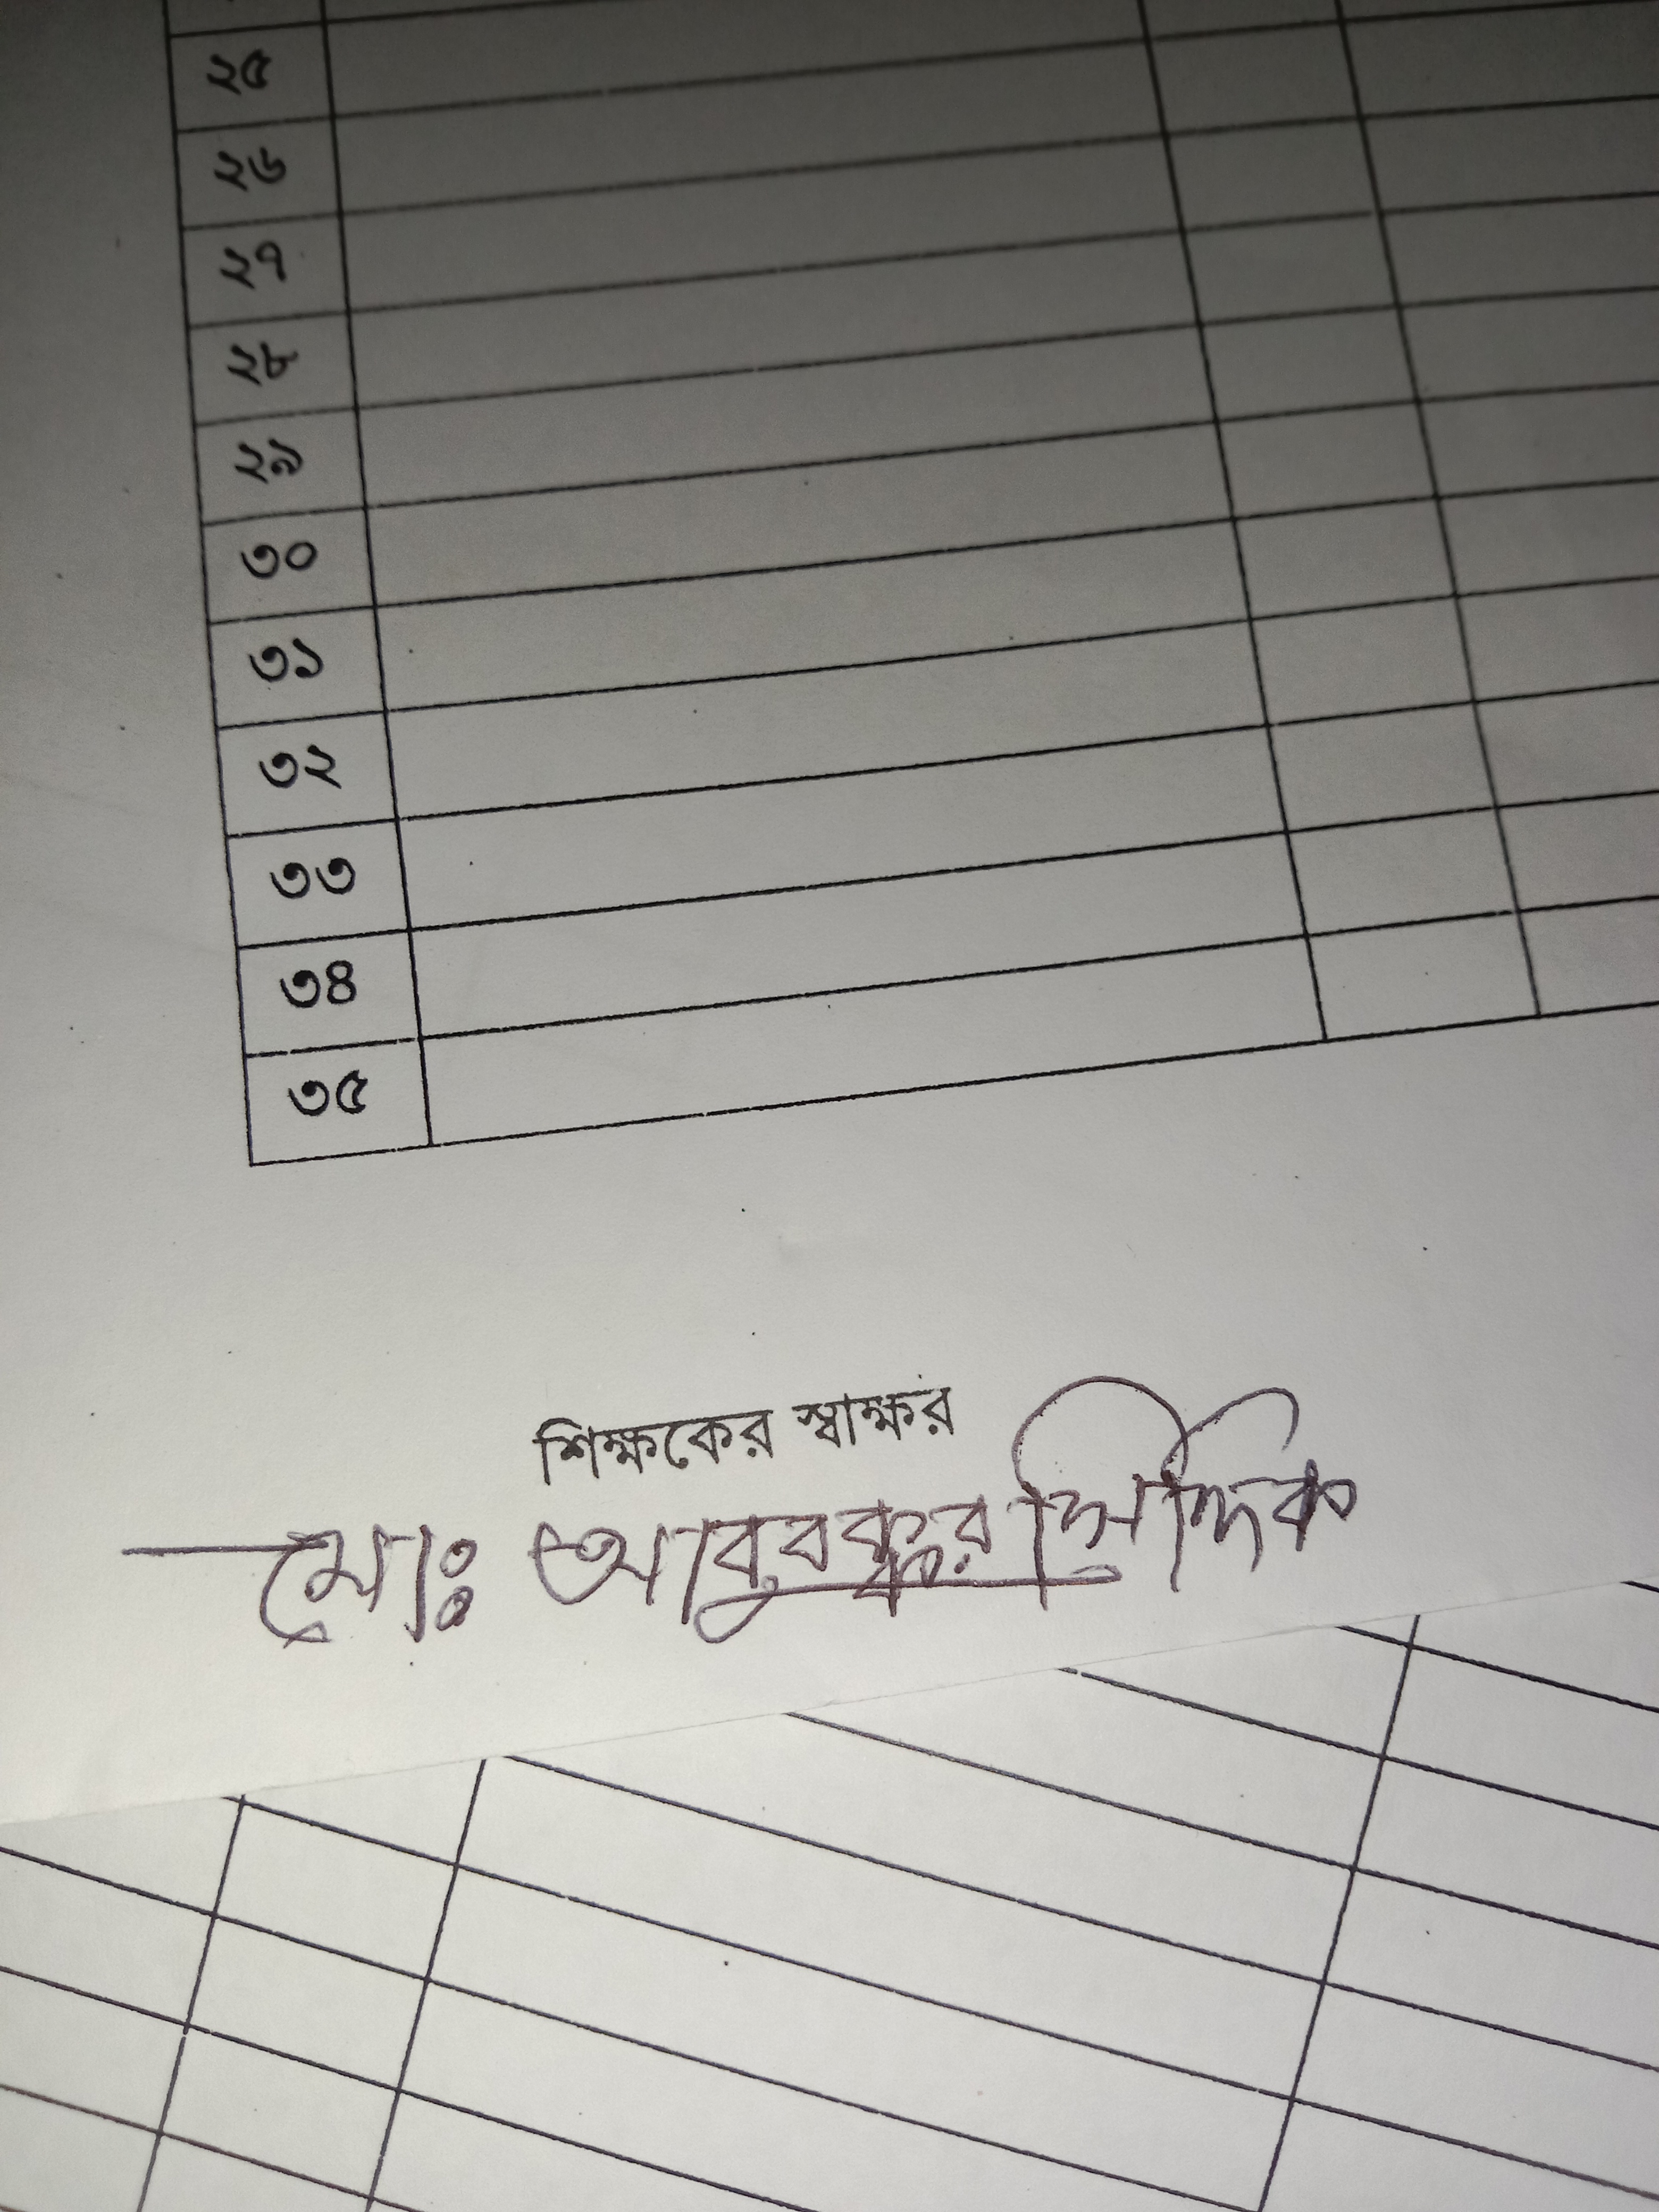 ২৫
২৬
২৭
২৮
২৯
৩০
৩১
৩২
৩৩
৩৪
৩৫
শিক্ষকের স্বাক্ষর
মোঃ আবুবক্কর সিদ্দিক